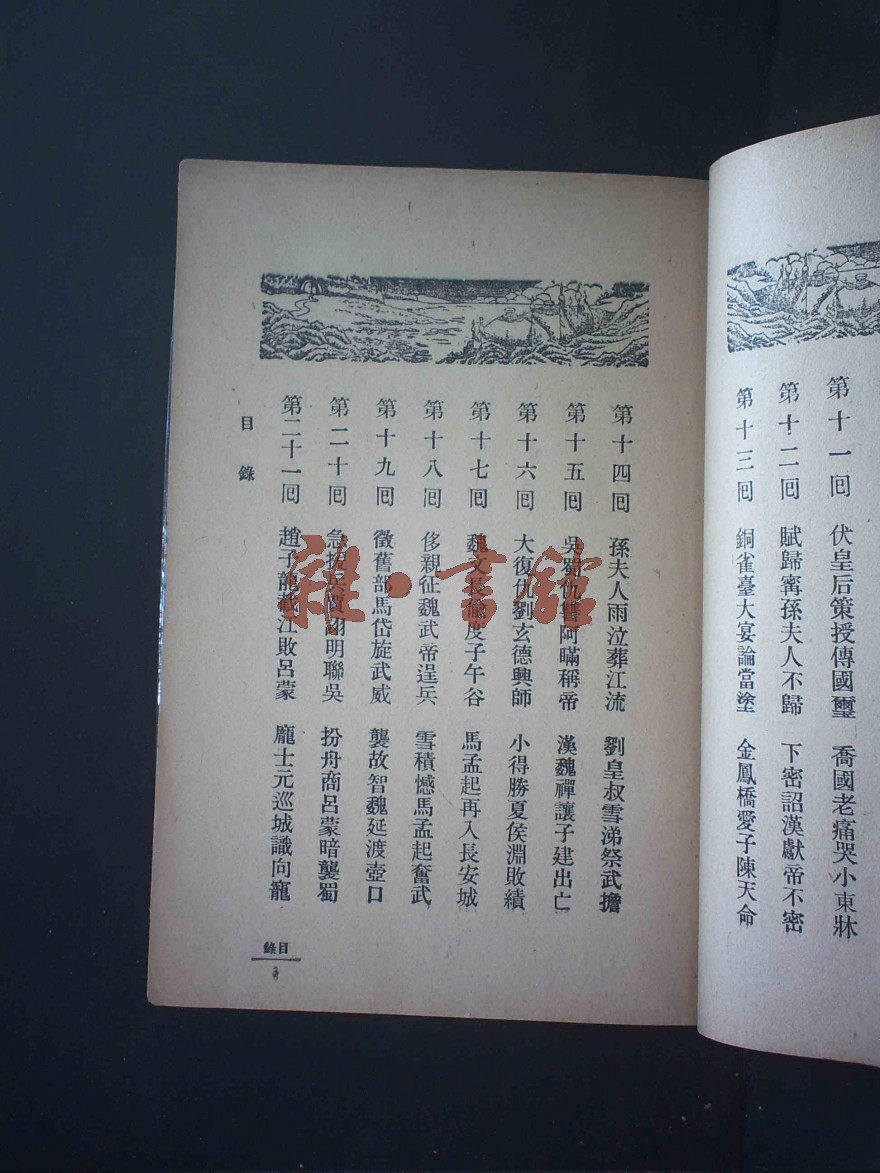 第十一回　伏皇后策授傳國璽　喬國老痛哭小東牀
第十二回　賦歸寗孫夫人不歸　下密詔漢獻帝不密
第十三回　銅雀臺大宴論當塗　金鳳橋愛子陳天命
第十四回　孫夫人雨泣葬江流　劉皇叔雪涕祭武擔
第十五回　吳蜀仇讐阿瞞稱帝　漢魏禪讓子建出亡
第十六回　大復仇劉玄德興師　小得勝夏侯淵敗績
第十七回　魏文長偷度子午谷　馬孟起再入長安城
第十八回　侈親征魏武帝逞兵　雪積憾馬孟起奮武
第十九回　徵舊部馬岱旋武威　襲故智魏延渡壺口
第二十回　急援兵賈詡明聯吳　扮舟商呂蒙暗襲蜀
第二十一回　趙子龍截江敗呂蒙　龐士元巡城識向寵
目錄
目錄
雜·書館